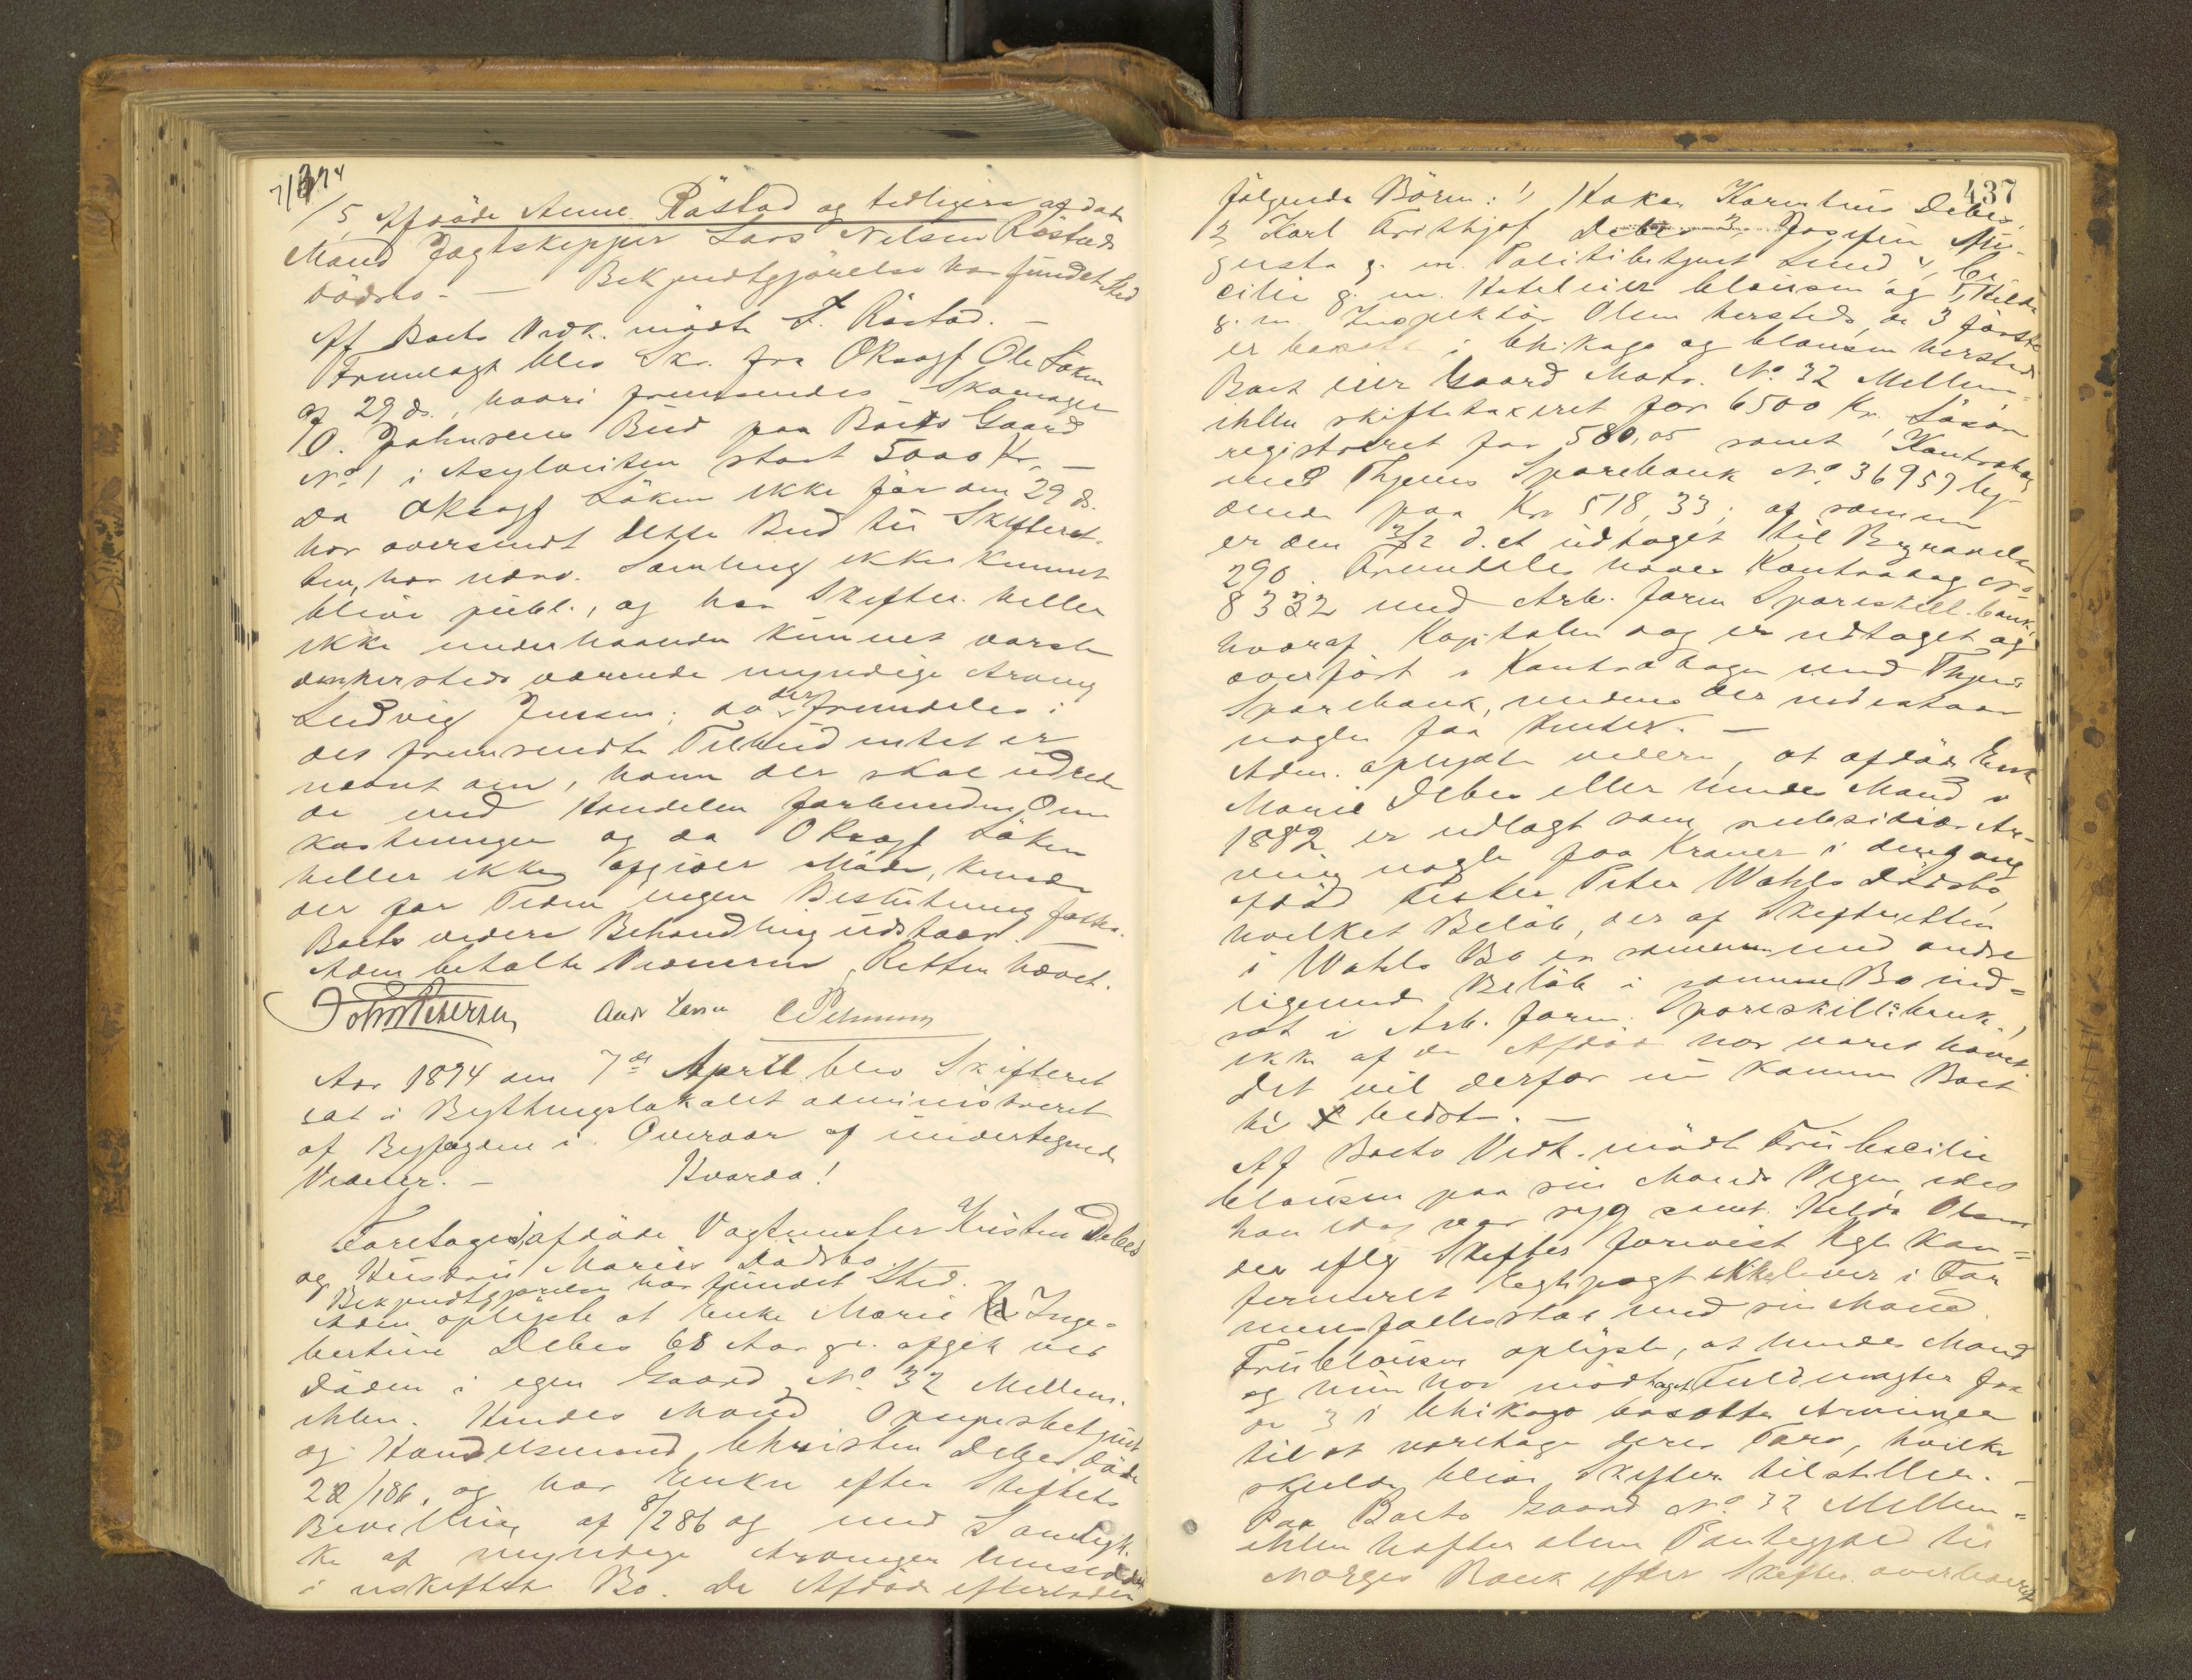 7/4 94
5, Afdøde Anne Råstad og tidligere afdøde
Mand Jagtskipper Lars Nilsen Råstads
dödsbo. — Bekjendtgjörelse har fundet Sted
Af Boets Vedk. mødte F. Råstad. —
Fremlagt blev Skr. fra ORsagf Ole Löken
af 29 ds., hvori fremsendes Skomager
O. Johnsens Bud paa Boets Gaard
No 1 i Asylveiten stort 5000 Kr. —
Da ORsagf Löken ikke för den 29 ds.
har oversendt dette Bud til Skifteret-
ten, har nærv. Samling ikke kunnet
blive publ., og har Skifter. heller
ikke underhaanden kunnet varsle
den hersteds værende myndige Arving
Ludvig Jensen; da der fremdeles i
det fremsendte Tilbud intet er
nævnt om, hvem der skal udrede
de med Handelen forbundne Om-
kostninger og da ORsagf Löken
heller ikke afgiver Møde, kunde
der for Tiden ingen Beslutning fattes.
Boets videre Behandling udstaar. —
Adm. betalte Vidnerne. Retten hævet.
John Petersen Andr Larsen C Pehrson
Aar 1894 den 7de April blev Skifteret
sat i Bythingslokalet administreret
af Byfogden i Overvær af undertegnede
Vidner. — Hvorda!
Foretoges 1, afdøde Vogtmester Kristen Debes
og Hustru Maries Dödsbo.
Bekjendtgjörelse har fundet Sted.
Adm oplyste at Enke Marie Inge-
bertine Debes 68 Aar gl. afgik ved
döden i egen Gaard No 32 Mellem-
ihlen. Hendes Mand Opsynsbetjent
og Handelsmand Christen Debes döde
/186, og har Enken efter Skiftets
Bevilling af 8/2 86 og med Samtyk-
ke af myndige Arvinger hensiddet
i uskiftet Bo. De Afdøde efterlader
437
fölgende Börn: 1, Hakon Kornelius Debes,
2, Karl Frithjof Debes 3, Josefine Au-
gusta g. m. Politibetjent Lund, 4, Ce-
cilie g. m. Hoteleier Clausen og 5, Hilda
g. m. Inspektör Olsen hersteds, de 3 förste
er bosatte i Chikago og Clausen hersteds
Boet eier Gaard Matr. No 32 Mellem-
ihlen skiftetaxeret for 6500 Kr, Lösöre
registreret for 580,05 samt Kontrabog
med Thjems Sparebank No 36957 ly-
dende paa Kr 518,33; af samme
er den 3/2 d. A udtaget til Begravelse
290. Fremdeles haves Kontrabog No
8332 med Arb. foren Spareskill.bank,
hvoraf Kapitalen dog er udtaget og
overfört i Kontrabogen med Thjems
Sparebank, medens der indestaar
nogle faa Renter. —
Adm. oplyste videre, at afdöde Enke
Marie Debes eller hendes Mand i
1882 er udlagt som subsidiær Ar-
ving nogle faa Kroner i dengang
afdöd Fisker Peter Wahls Dödsbo,
hvilket Belöb, der af Skifteretten
i Wahls Bo er sammen med andre
lignende Belöb i samme Bo ind-
sat i Arb. foren. Spareskill:bank,
ikke af de Afdöde har været hævet
det vil derfor nu komme Boet
til bedste. —
Af Boets Vedk. mödte Fru Cecilie
Clausen paa sin Mands Vegne, idet
han idag var syg samt Hilda Olsen
der iflg Skifter forevist Kgl. Kon-
firmeret Ægtepagt ikke lever i For-
muesfællesskab med sin Mand
Fru Clausen oplyste, at hendes Mand
og hun har modtaget Fuldmagter fra
de 3 i Chikago bosatte Arvinger
til at varetage deres Tarv, hvilke
skulde blive Skifter. tilstillet. —
Paa Boets Gaard No 32 Mellem-
ihlen hefter alene Pantegjæld til
Norges Bank efter Skifter. overleveret